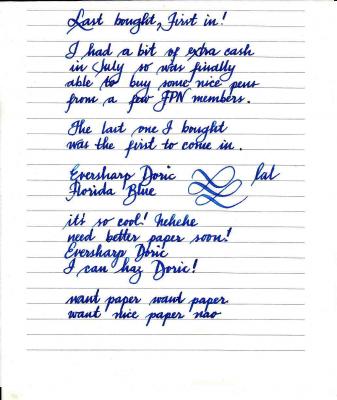 Last bought, First in!
I had a bit of extra cash
in July so was finally
able to buy some nice pens
from a few FPN members.
The last one I bought
was the first to come in.
Eversharp Doric lal
Florida Blue
it's so cool! hehehe
need better paper soon!
Eversharp Doric
I can haz Doric!
want paper want paper
want nice paper nao